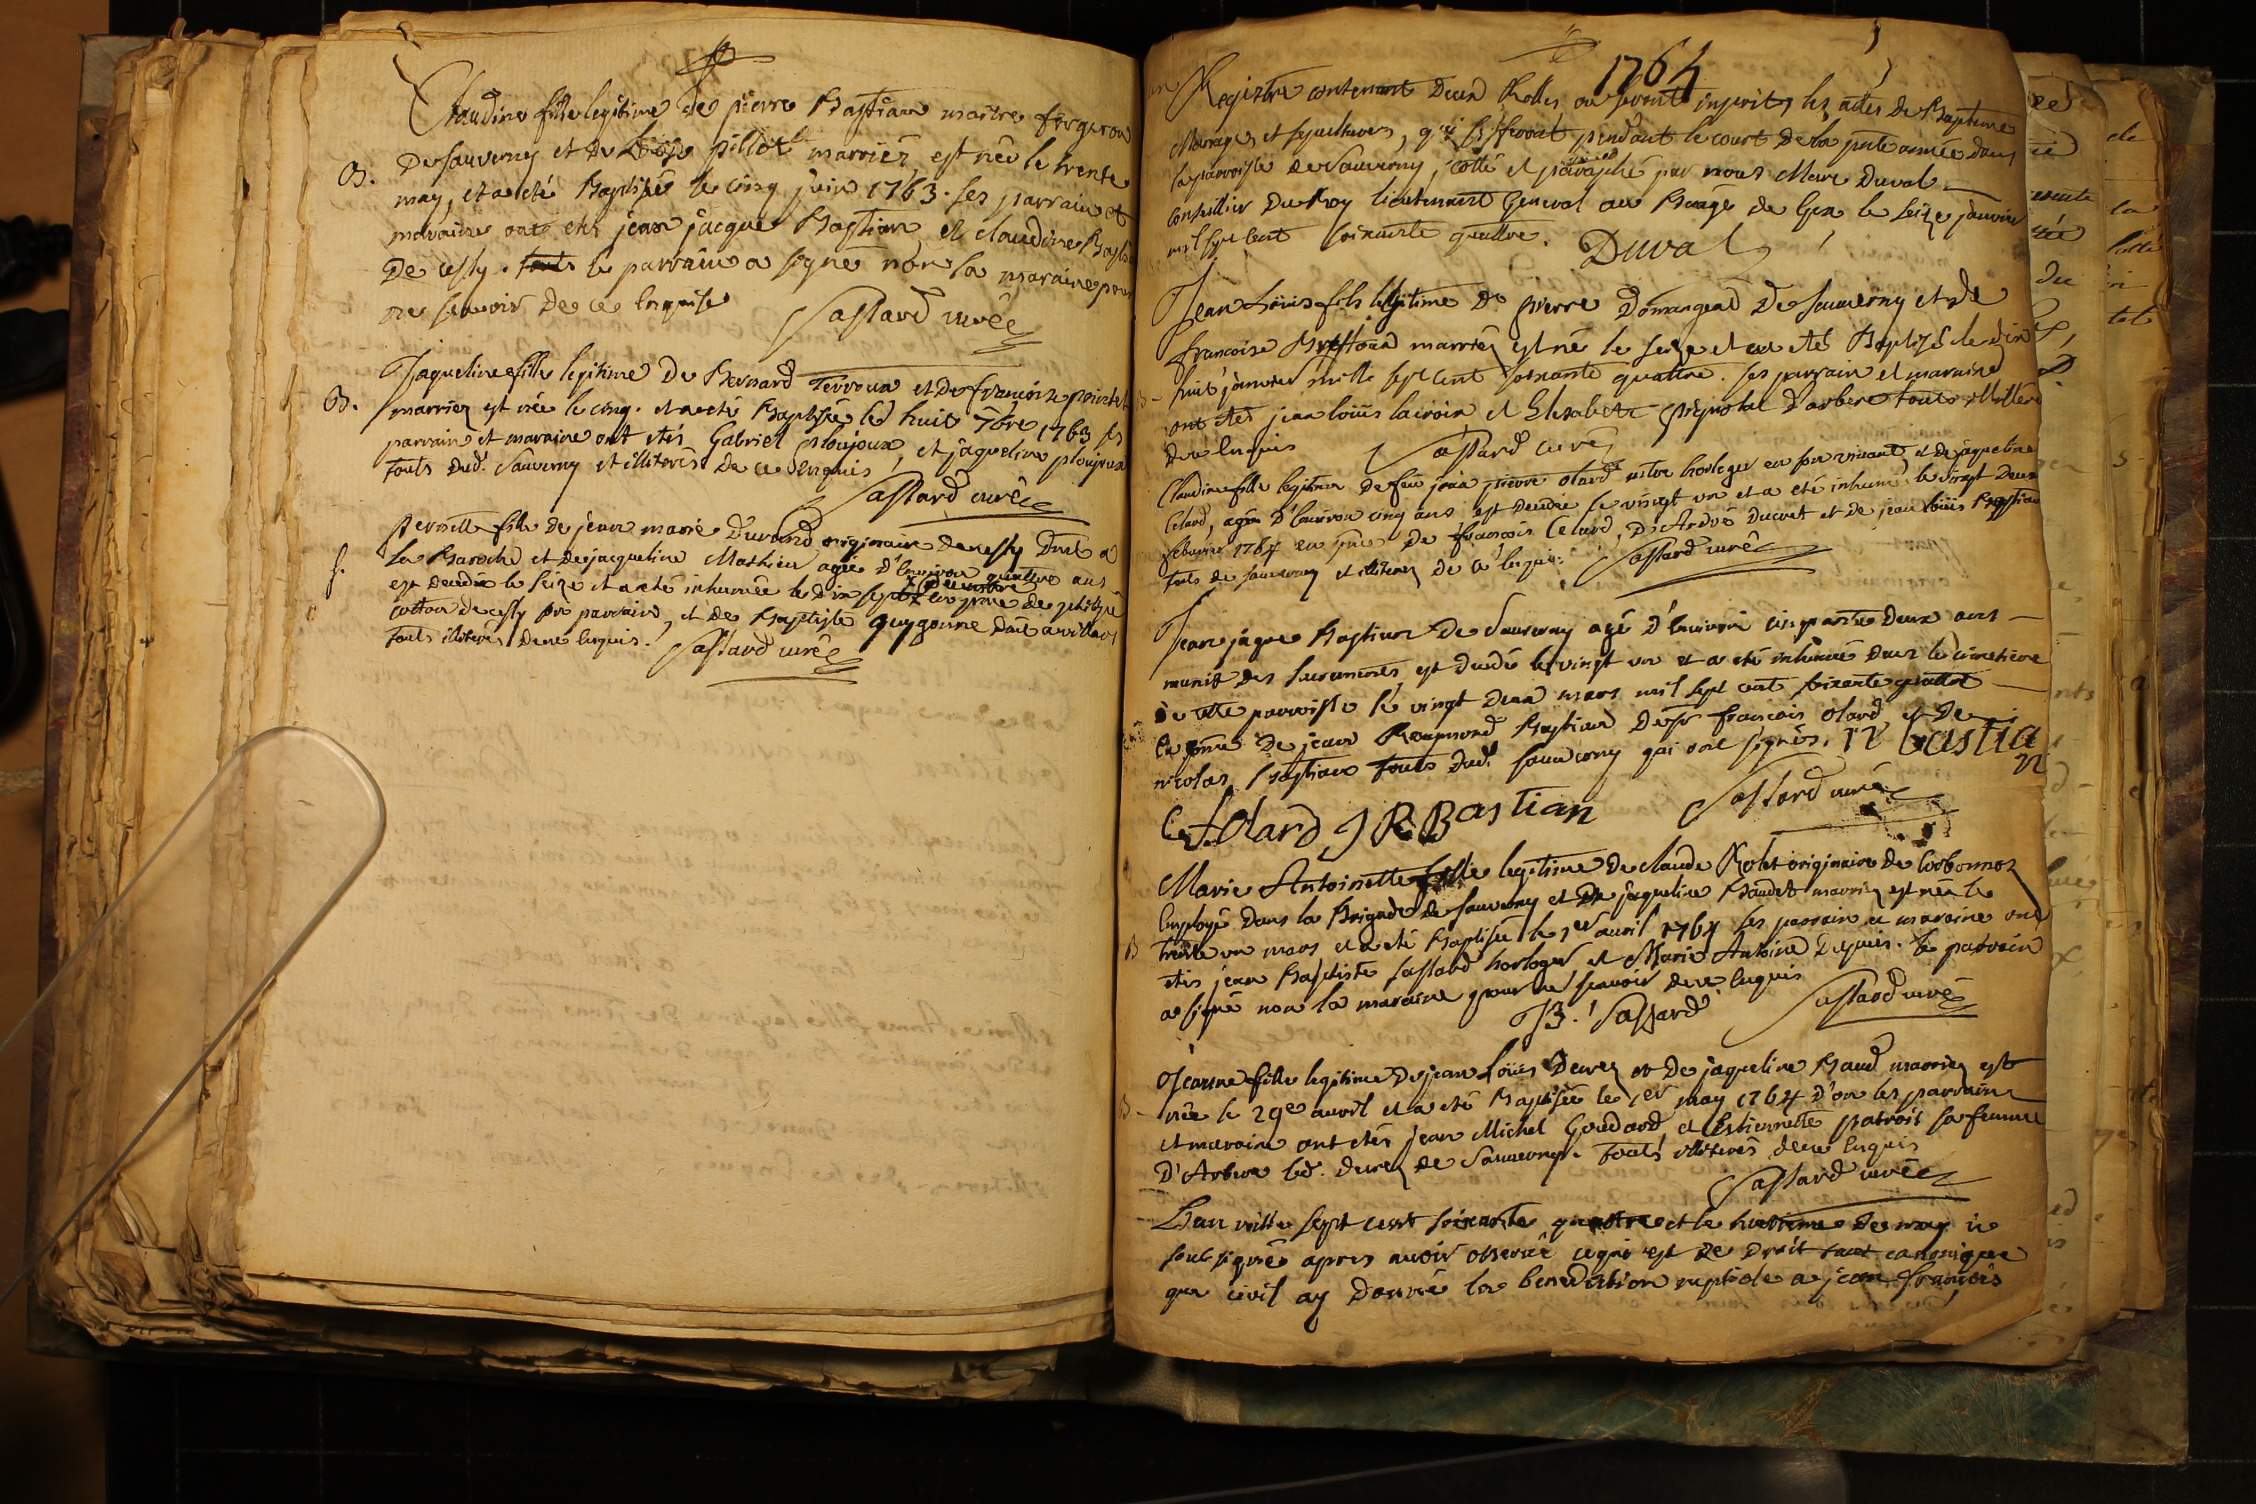 Claudine fille legitime de pierre Bastian maitre forgeron
B. De sauverny et de Louise pillot marriéz est née le trente
may, et a eté Baptisée le cinq juin 1763. ses parrain et
maraine ont etés jean jacque Bastian et claudine
De cessy. le parrain a signé non la maraine pour
ne scavoir de ce enquise
Passard curé
Jaqueline fille legitime De Bernard Terroux et De francoise pointet
B. marriez est née le cinq. et a eté Baptisée le huit 7bre 1763 ses
parrain et maraine ont etés Gabriel ploujoux, et jaqueline ploujoux
touts dud. Sauverny et illiterés de ce enquis
Passard curé
pernette fille de jean marie Durand originaire de cessy Dmt a
S. La Baroche et de jacqueline Mathieu agée d'environ quattre ans
est decedée le seize et a eté inhumée le dix sept decembre en pnce de
cottier de cessy son parrain, et de Baptiste guygonne Dmt a villard
touts illiterés de ce enquis.
Passard curé
1764
Registre contenant Deux Rolles ou seront inscrits les actes de Baptemes
Mariages et sepultures, qui se feront pendant le court de la pnte année dans
la parroisse de Sauverny, cotté et paraphé par nous Marc Duval
conseiller Du Roy lieutenant General au Baage de Gex le seize janvier
mil sept cent soixante quattre. Duval
Jean Loüis fils legitime De pierre Domangead De Sauverny et de
francoise marriez est né le seize et a eté Baptizé le dix
huit janvier mille sept cent soixante quattre. ses parrain et maraine
ont etés jean loüis lacroix et Elisabeth D'arbere touts illiterés
de ce enquis Passard curé
Claudine fille legitime De feu jean pierre olard mtre horloger en son vivant et De jaqueline
Celard, agée D'environ cinq ans est decedée le vingt un et a eté inhumé le vingt Deux
febvrier 1764 en pnce De francois Celard, D'André Ducret et de jean loüis Bastian
touts de sauverny et illiterez de ce enquis. Passard curé
Jean jaque Bastian De Sauverny agé d'environ cinquante Deux ans
munit des sacremens, est decedé le vingt un et a eté inhumé Dans le cimetiere
de cette parroisse le vingt Deux mars mil sept cent soixante quattre
en pnce De jean Raymond Bastian De sr francois olard et De
nicolas Bastian touts dud. sauverny qui ont signés. n bastia
n
C f olard J R Bastian Passard curé
Marie Antoinette fille legitime De claude Rolet originaire de
Employé Dans la Brigade de sauverny et De jaqueline Baudet marriez est née le
B trente un mars et a eté Baptisée le 1er avril 1764 ses parrain et maraine ont
etés jean Baptiste passard horloger et Marie Antoine Dupuis. le parrain
a signé non la maraine pour ne scavoir de ce enquis
JB. Passard Passard curé
Jeanne fille legitime De jean Loüis Decrez et De jaqueline Baud marriez est
née le 29e avril et a eté Baptisée le 1er may 1764 d'on les parrain
et maraine ont etés jean Michel Goudard et Estiennette patroit sa femme
D'Arbere led. Decrez de Sauverny. touts illiterés de ce enquis
Passard curé
L'an mille sept cent soixante quattre et le huitieme de may je
soussigné apres avoir observé ce qui est de Droit tant canonique
que civil ay Donné la benediction nuptiale a jean françois